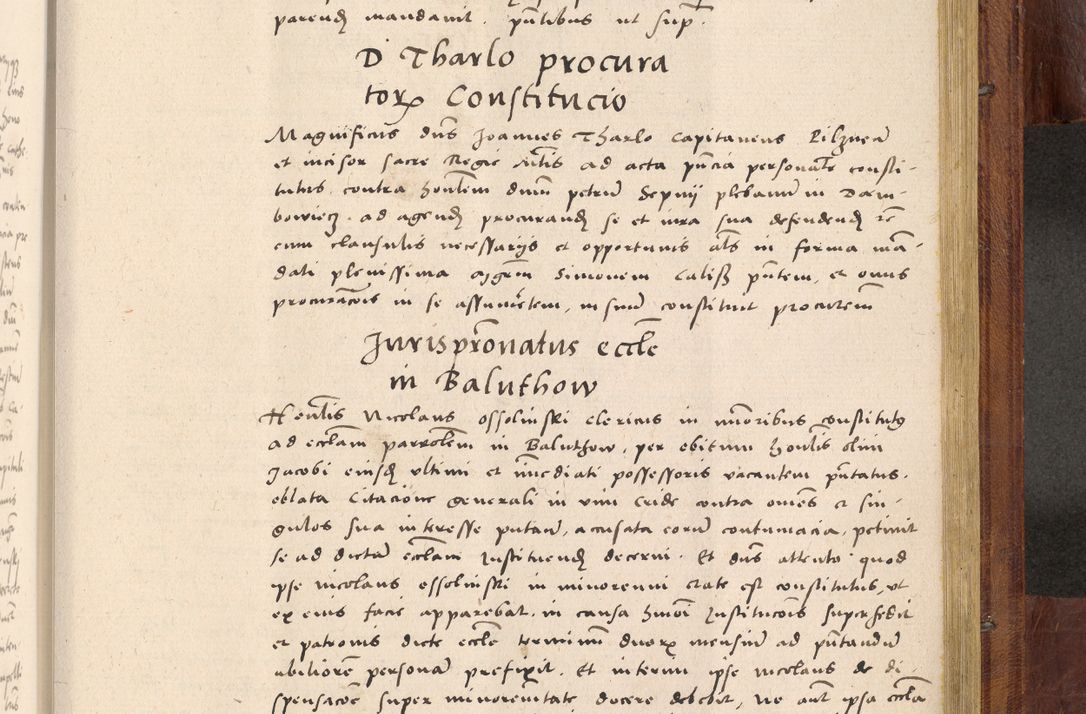 parend mandavit. pntibus ut supr.
D Tharlo procura
tor Constitucio
Magnificus dns Joannes Tharlo Capitaneus Pilznen
et incisor sacre Regie Mtis ad acta pncia personalr consti-
tutus contra honlem dnum petrum Sepnij plebanum in Dam-
bowiecz. ad agend procurand se et iura sua defendend etc
cum clausulis necessarijs et opportunis als in forma man-
dati plenissima Simonem Calissz pntem, et onus
procuracois in se assumetem, in suum constituit procurem
Jurispronatus eccle
in Baluthow
Honlis Nicolaus Ossolinski clericus in minoribus constitutus
ad ecclam parrolem in Baluthow, per obitum honlis olim
Jacobi eiusd ultimi et immediati possessoris vacantem pntatus.
oblata Citacione generali in vim cride contra omnes et sin-
gulos sua interesse putan, accusata eorum contumacia, petivit
se ad dictam ecclam Instituend decerni. Et dns attento quod
ipse nicolaus ossolinski in minorenni etate est constitutus, ut
ex eius facie apparebat. in causa hmoi Institucois supersedit
et patronis dicte eccle terminum duor mensium ad pntandum
abiliorem personam prefixit. Et interim ipse nicolaus de di-
spensacoe super minorennitate docere debebit, Ne aut ipsa eccla